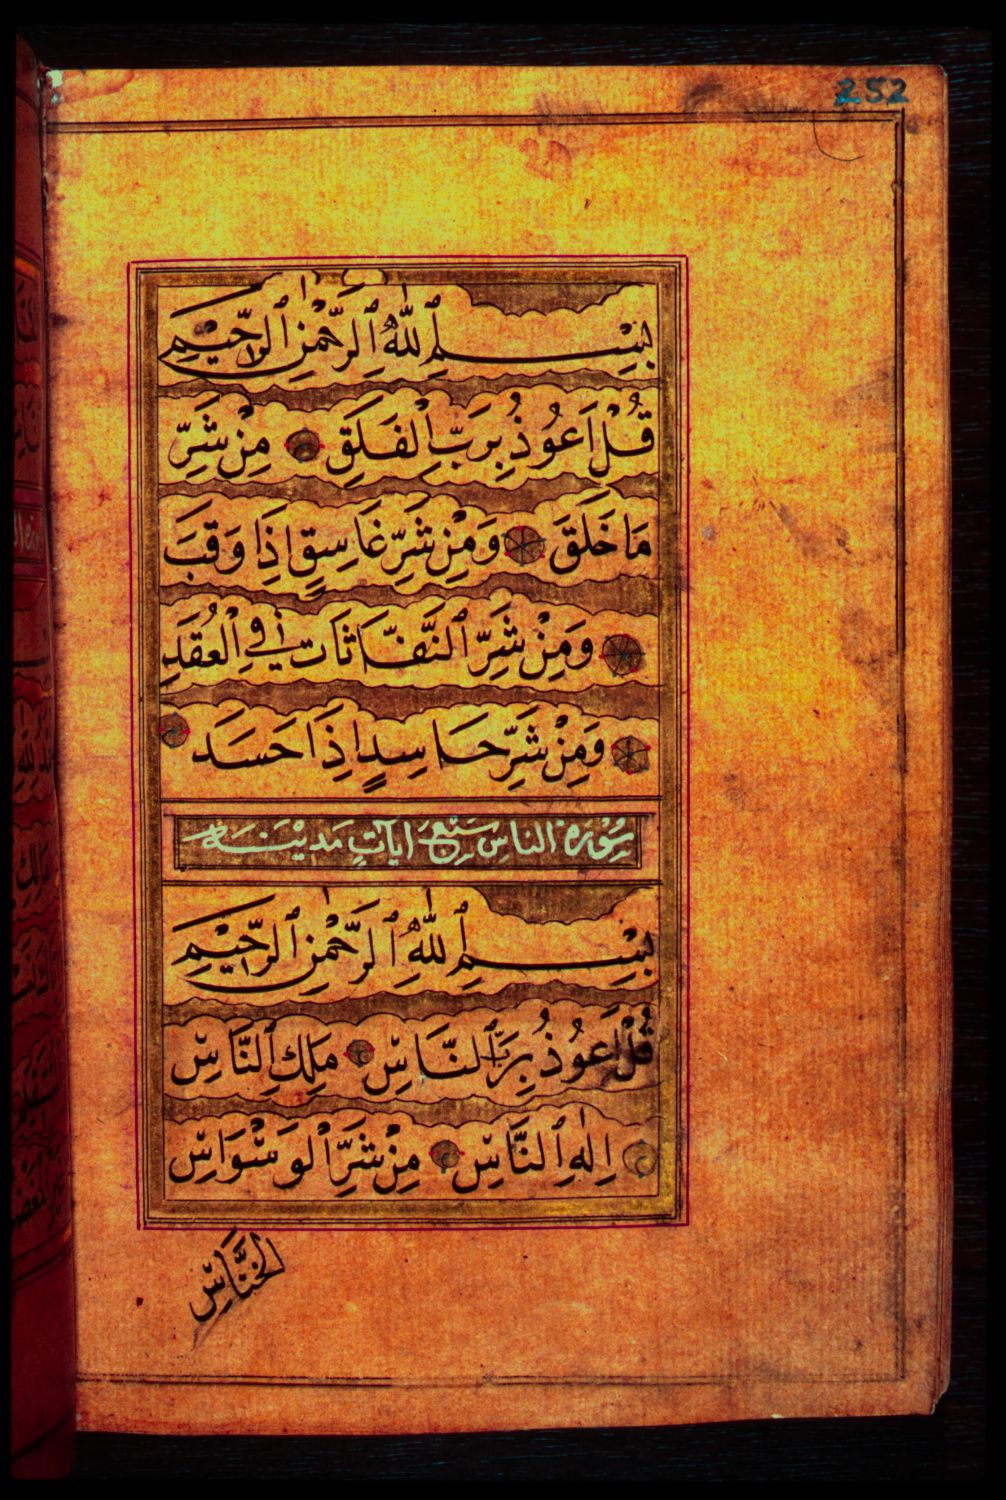 252
بِسْمِ ٱللّٰهِ ٱلرَّحْمٰنِ ٱلرَّحِيْمِ
قُلْ اَعُوْذُ بِرَبِّ اِلْفَلَقِ مِنْ شَرِّ
مَا خَلَقَ وَمِنْ شَرِّ غَاسِقٍ اِذَا وَقَبَ
وَمِنْ شَرِّ ٱلنَّفّٰثَاتِ فِي اِلْعُقَدِ
وَمِنْ شَرِّ حَاسِدٍ اِذَا حَسَدَ
سُوْرَة الناسِ سَبْعَ ايَاتٍ مَدِيْنَة
بِسْمِ ٱللّٰهِ ٱلرَّحْمٰنِ ٱلرَّحِيْمِ
قُلْ اَعُوْذُ بِرَبِّ ٱلنَّاسِْ مَلِكِ ٱلنَّاسِْ
اِلٰهِ ٱلنَّاسِْ مِنْ شَرِّ ٱلْوَسْوَاسِْ
الْخَنَّاسِْ